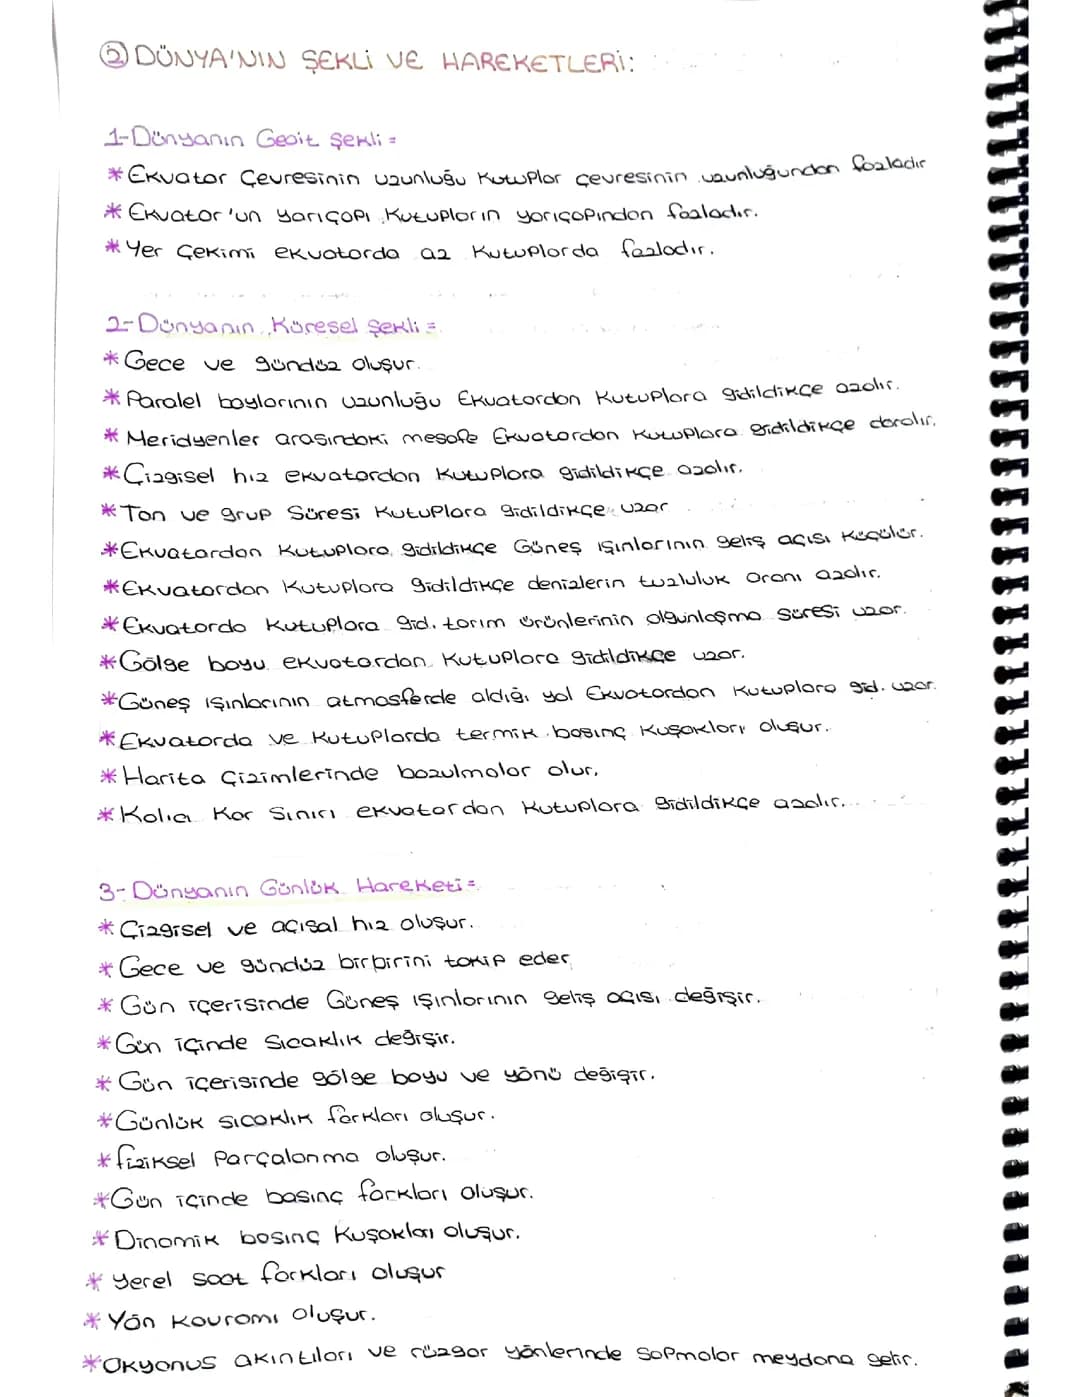 ② DÜNYA'NIN ŞEKLİ VE HAREKETLERİ:
1-Dünyanın Geoit Şekli =
* Ekvator Çevresinin uzunluğu Kutuplar çevresinin uzunluğundan fazladır
* Ekvator'un yarıçapı Kutupların yarıçapından fazladır.
* Yer Çekimi ekvatorda az Kutuplarda fazladır.
2-Dünyanın Küresel Şekli =
* Gece ve gündüz oluşur.
* Paralel boylarının uzunluğu Ekvatordan Kutuplara gidildikçe azalır.
* Meridyenler arasındaki mesafe Ekvatordan Kutuplara gidildikçe daralır.
* Çizgisel hız ekvatordan Kutuplara gidildikçe azalır.
* Tan ve grup Süresi Kutuplara gidildikçe uzar
* Ekvatordan Kutuplara gidildikçe Güneş ışınlarının geliş açısı küçülür.
* Ekvatordan Kutuplara gidildikçe denizlerin tuzluluk oranı azalır.
* Ekvatorda Kutuplara gid. tarım ürünlerinin olgunlaşma Süresi uzar.
* Gölge boyu ekvatordan Kutuplara gidildikçe uzar.
* Güneş ışınlarının atmosferde aldığı yol Ekvatordan Kutuplara gid. uzar.
* Ekvatorda ve Kutuplarda termik basınç Kuşakları oluşur.
* Harita Çizimlerinde bozulmalar olur.
* Kalıcı Kar Sınırı ekvatordan Kutuplara gidildikçe azalır.
3-Dünyanın Günlük Hareketi =
* Çizgisel ve açısal hız oluşur.
* Gece ve gündüz birbirini takip eder
* Gün içerisinde Güneş ışınlarının geliş açısı değişir.
* Gün içinde Sıcaklık değişir.
* Gün içerisinde gölge boyu ve yönü değişir.
* Günlük sıcaklık farkları oluşur.
* fiziksel Parçalanma oluşur.
* Gün içinde basınç farkları oluşur.
* Dinamik basınç Kuşakları oluşur.
* Yerel saat farkları oluşur
* Yön kavramı oluşur.
* Okyonus akıntıları ve rüzgar yönlerinde Sapmalar meydana gelir.